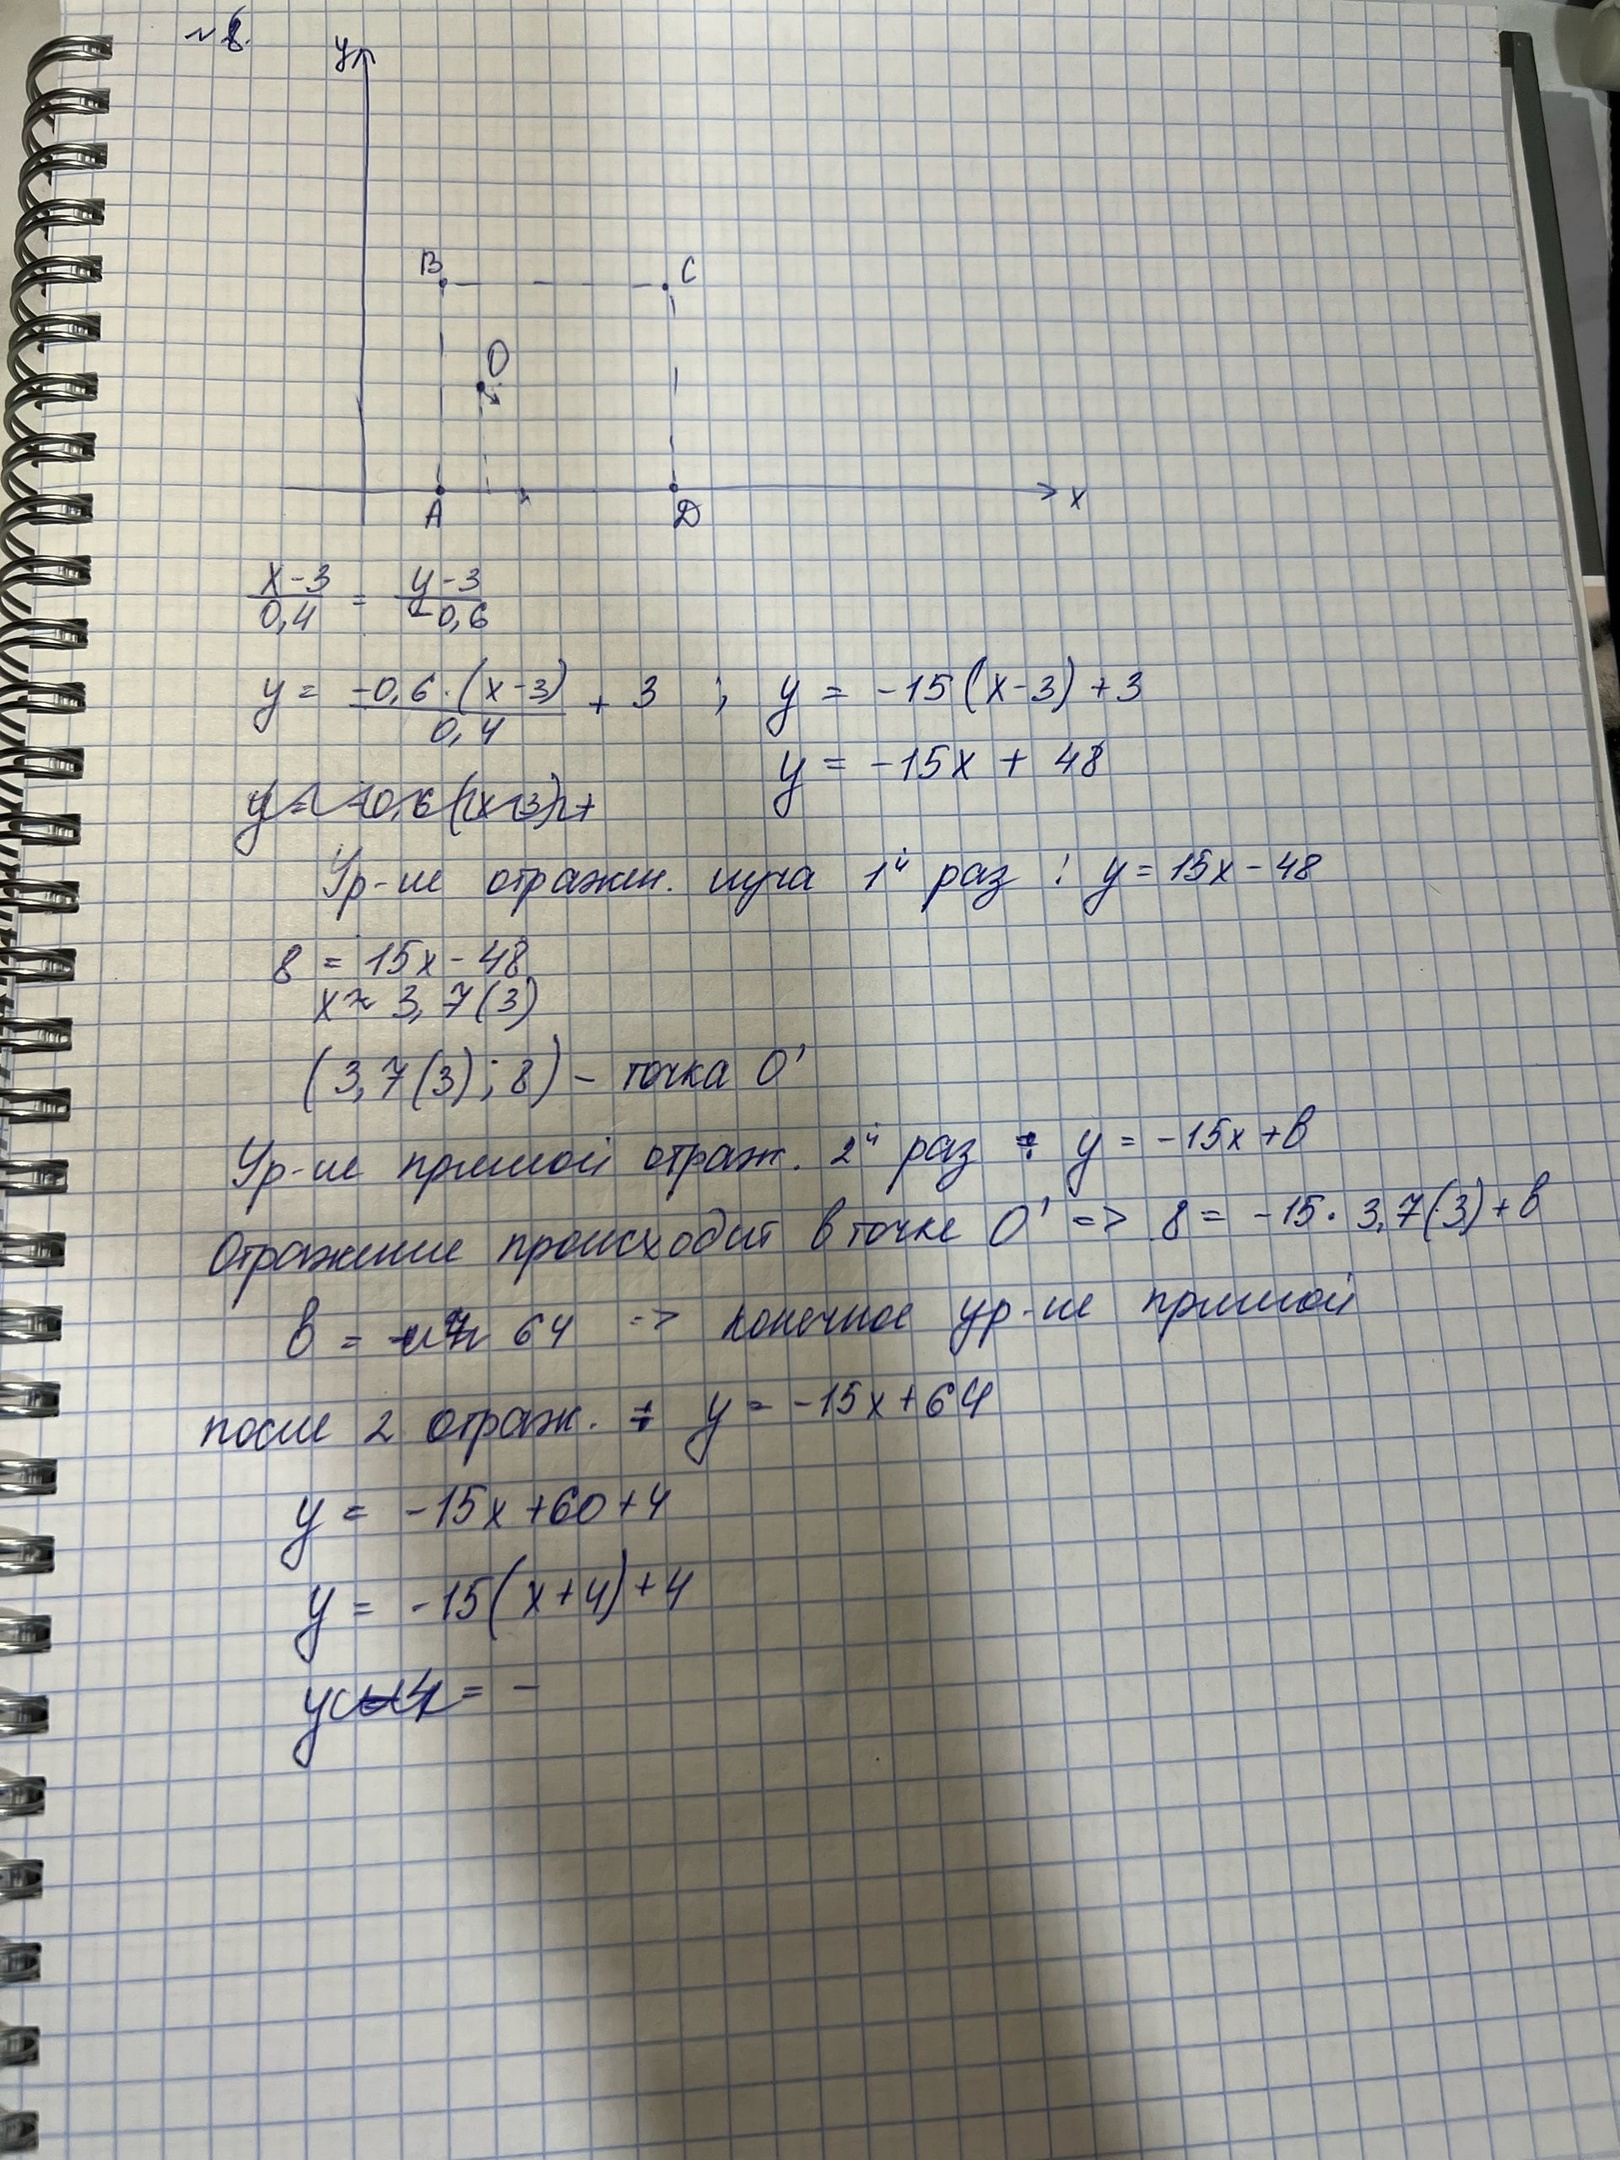 № 8.
y
B
C
O
A
D
x
(x-3)/0,4 = (y-3)/-0,6
y = -0,6·(x-3)/0,4 + 3 ; y = -15(x-3)+3
y = -15x + 48
Ур-ие отражен. луча 1й раз : y = 15x - 48
8 = 15x - 48
x ≈ 3,7(3)
(3,7(3); 8) - точка O'
Ур-ие прямой отраж. 2й раз : y = -15x + b
Отражение происходит в точке O' => 8 = -15·3,7(3)+b
b = 64 => конечное ур-ие прямой
после 2 отраж. : y = -15x + 64
y = -15x + 60 + 4
y = -15(x+4)+4
= -